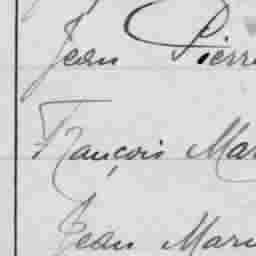 Jean Pierr
François Mar
Jean Marie